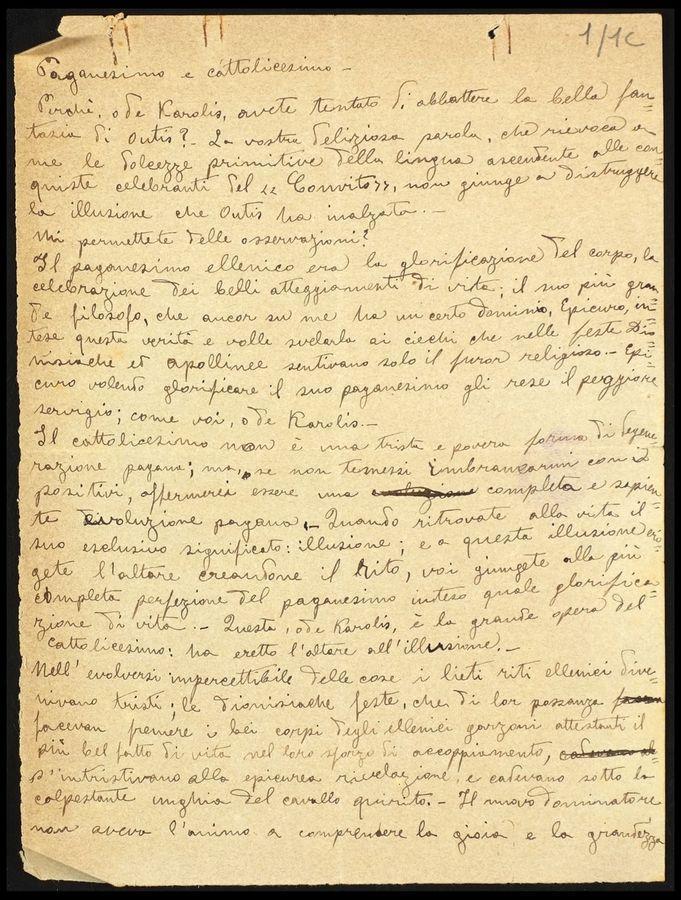 1/1c
Paganesimo e cattolicesimo -
Perchè, o de Karolis, avete tentato di abbattere la bella fan=
tasia di Outis? - La vostra deliziosa parola, che rievoca in
me le dolcezze primitive della lingua ascendente alle con=
quiste celebranti del "Convito", non giunge a distruggere
la illusione che Outis ha inalzata. -
Mi permettete delle osservazioni?
Il paganesimo ellenico era la glorificazione del corpo, la
celebrazione dei belli atteggiamenti di vita; il suo più gran=
de filosofo, che ancor su me ha un certo dominio, Epicuro, in=
tese questa verità e volle svelarla ai ciechi che nelle feste Dio=
nisiache ed apollinee sentivano solo il furor religioso. - Epi=
curo volendo glorificare il suo paganesimo gli rese il peggiore
servigio; come voi, o de Karolis. -
Il cattolicesimo non è una trista e povera forma di degene=
razione pagana; ma, se non temessi imbrancarmi con i
positivi, affermerei essere una completa e sapien=
te evoluzione pagana. - Quando ritrovate alla vita il
suo esclusivo significato: illusione; e a questa illusione eri=
gete l'altare creandone il Rito, voi giungete alla più
completa perfezione del paganesimo inteso quale glorifica=
zione di vita. - Questa, o de Karolis, è la grande opera del
cattolicesimo: ha eretto l'altare all'illusione. -
Nell'evolversi impercettibile delle cose i lieti riti ellenici dive=
nivano tristi; le dionisiache feste, che di lor possanza
facevan fremere i bei corpi degli ellenici garzoni attestanti il
più bel fatto di vita nel loro sforzo di accoppiamento,
s'intristivano alla epicurea rivelazione, e cadevano sotto la
calpestante unghia del cavallo quirito. - Il nuovo dominatore
non aveva l'animo a comprendere la gioia e la grandezza